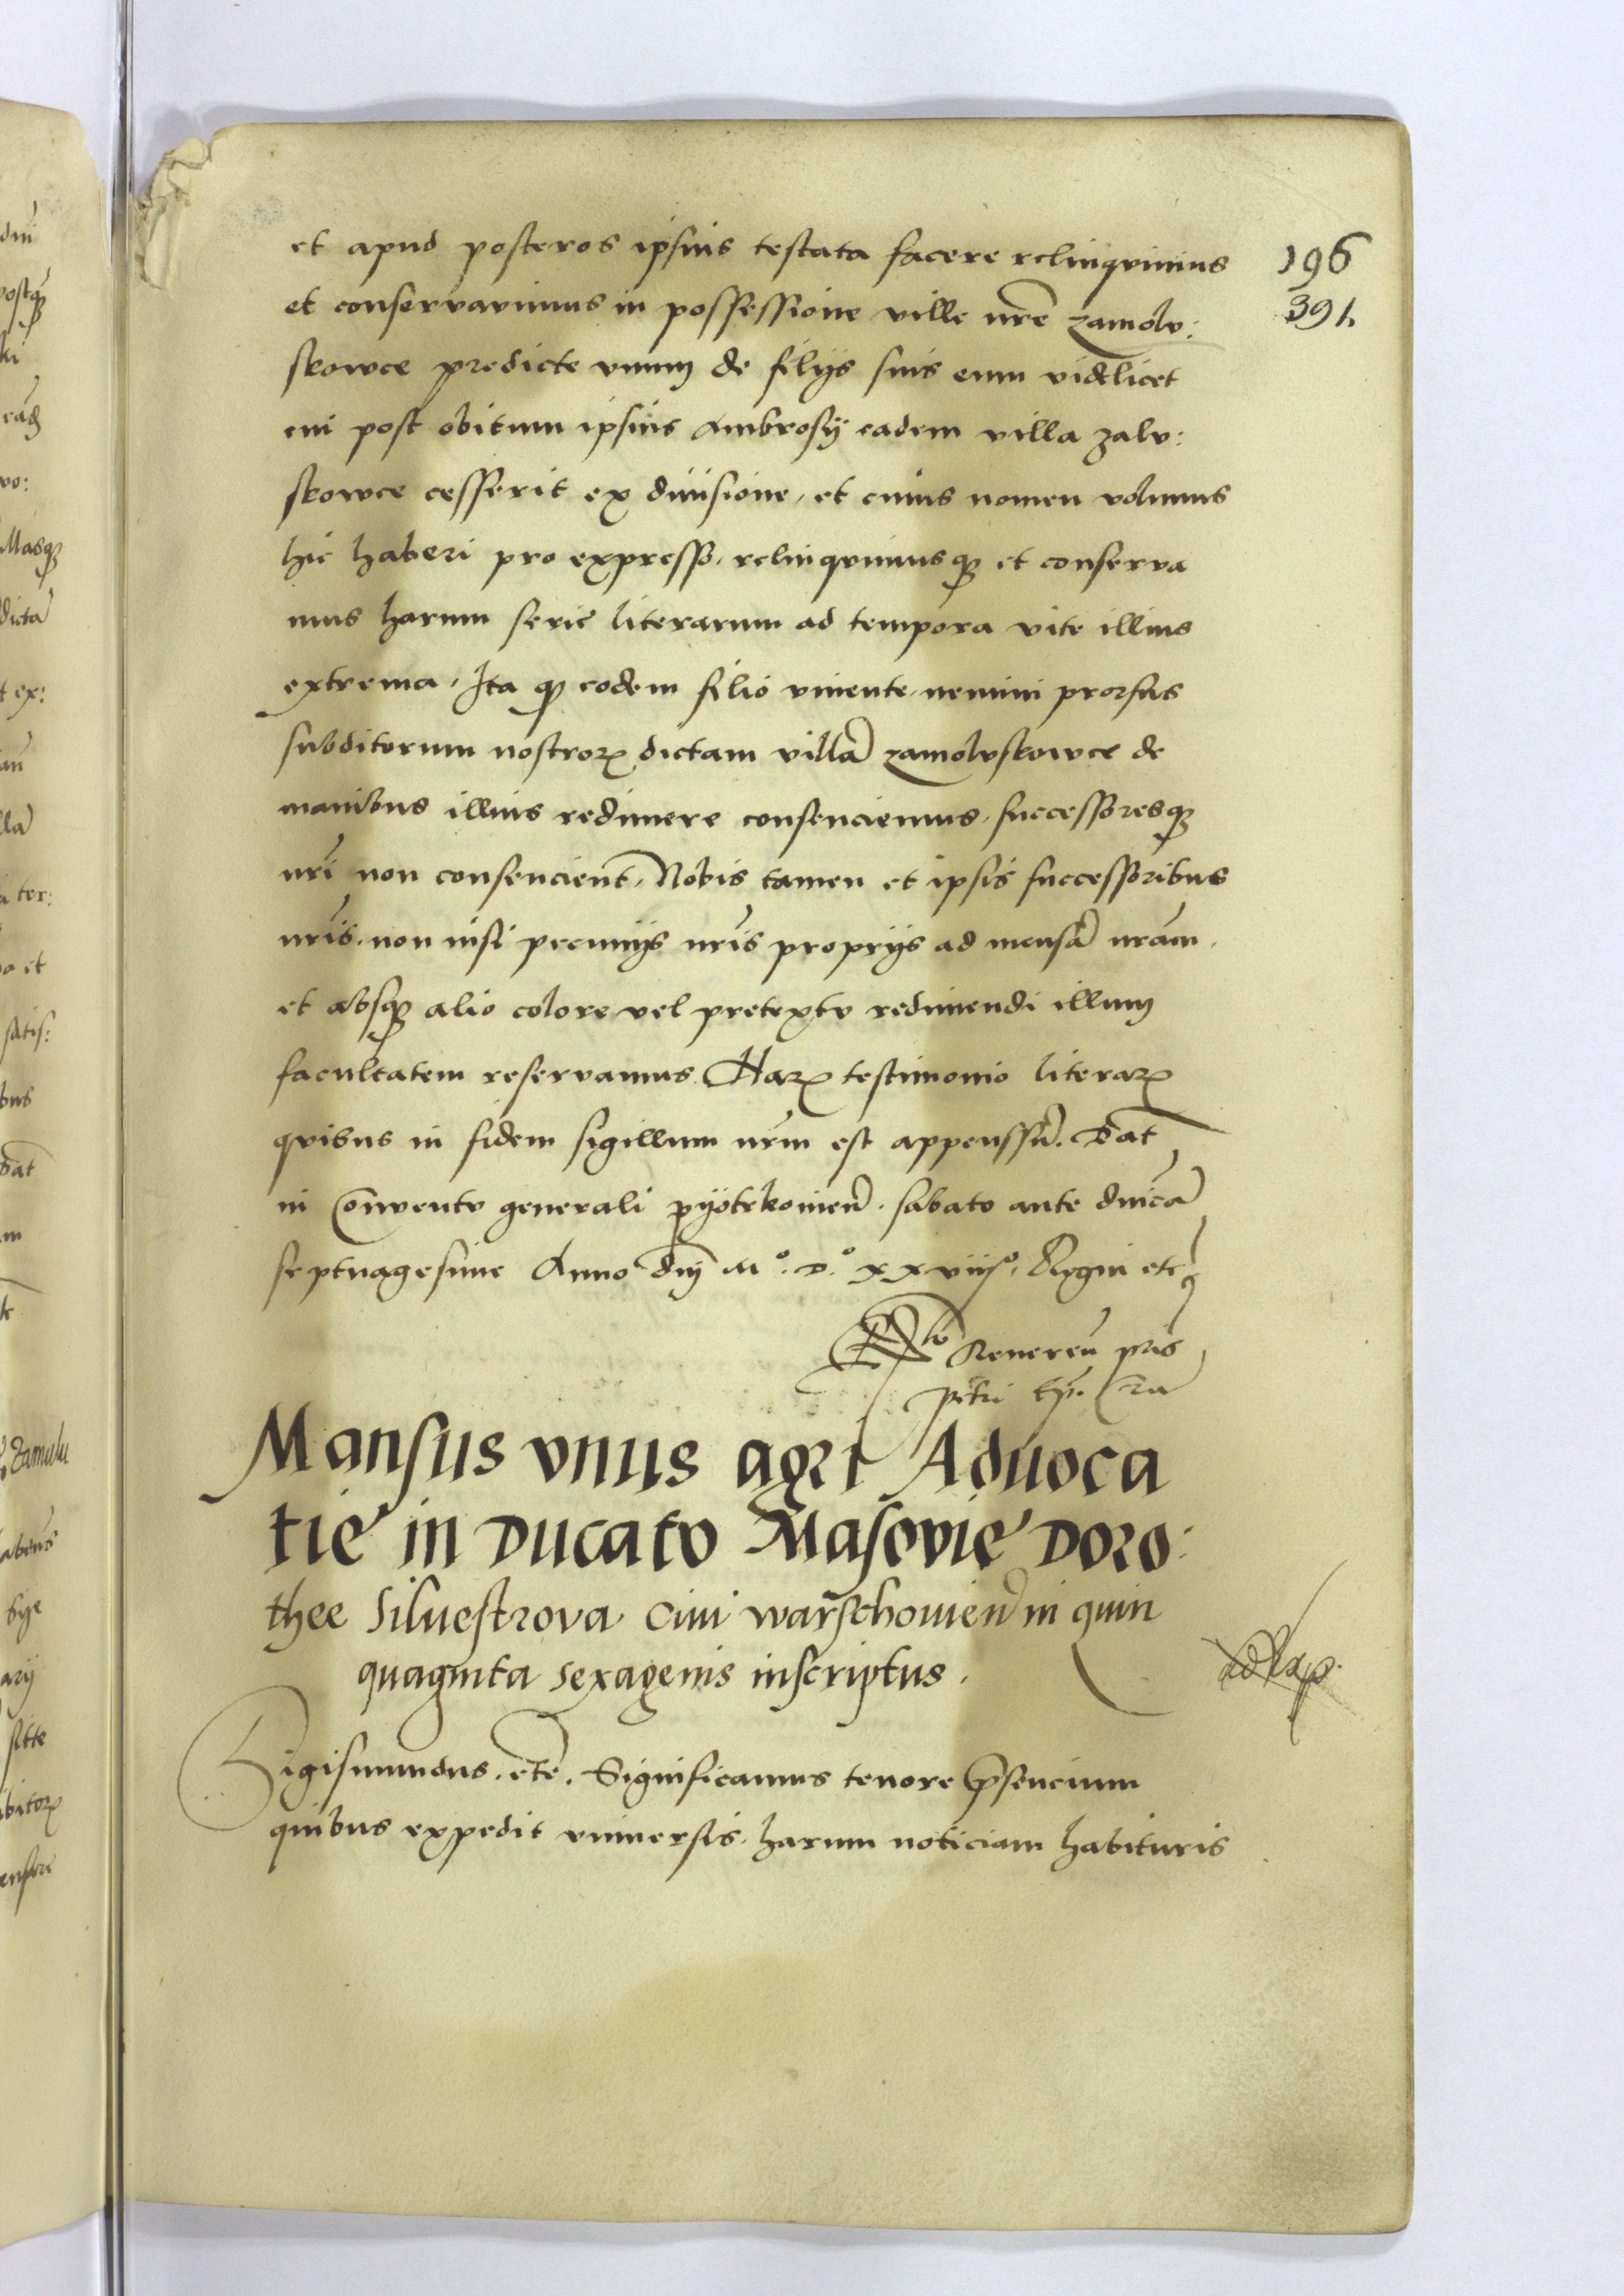 et apud posteros ipsius testata facere relinquimus
196
et conservavimus in possessione ville nr̃e zamolv:
391.
skowce predicte vnum de filijs suis eum videlicet
cui post obitum ipsius Ambrosij eadem villa zalv:
skowce cesserit ex diuisione, et cuius nomen volumus
hic haberi pro expresso, relinquimusqʒ et conserva
mus harum serie literarum ad tempora vite illius
extrema, Ita qʒ eodem filio viuente, nemini prorsus
subditorum nostroꝝ dictam villã zamolvskowce de
manibus illius redimere consenciemus, successoresqʒ
nr̃i non consencient, Nobis tamen et ipsis successoribus
nr̃is, non nisi pecunijs nr̃is proprijs ad mensã nr̃am,
et absqʒ alio colore vel pretextv redimendi illum
facultatem reservamus. Haꝝ testimonio literaꝝ
quibus in fidem sigillum nr̃m est appenssũ. Dat
in Conventv generali pyotrkouien̄. sabato ante dnĩcã
septuagesime Anno dnĩ Mº. Dº. xxviijº. Regni etc̃
Rtõ Reueren̄ pr̃is
petri Ep̃. Cra
Mansus vnus agri Aduoca
tie in Ducatv Masovie Doro:
thee Siluestrova Ciui warschouien̄ in quin
quaginta sexagenis inscriptus.
Sigismundus, etc̃. Significamus tenore p̃sencium
quibus expedit vniuersis, harum noticiam habituris